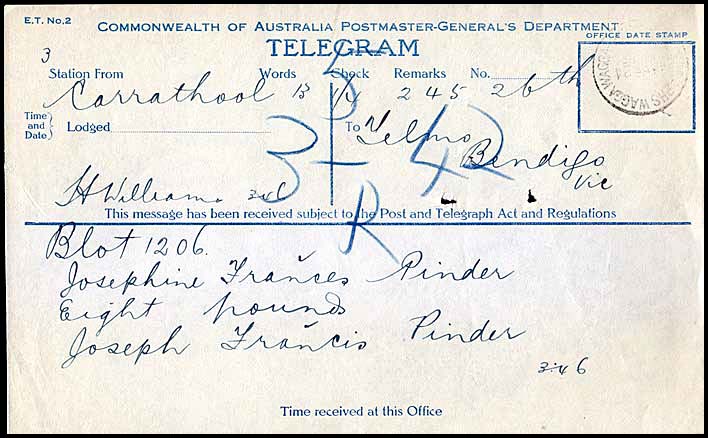 E.T. No. 2
COMMONWEALTH OF AUSTRALIA POSTMASTER-GENERAL'S DEPARTMENT.
OFFICE DATE STAMP
TELEGRAM
3
Station From Words Check Remarks No.
Carrathool 13 1/4 2 45 26th
Time and Date} Lodged To Telmo
Bendigo
Vic
3 - 42
R
H Williams 3.46
This message has been received subject to the Post and Telegraph Act and Regulations
Blot 1206.
Josephine Frances Pinder
Eight pounds
Joseph Francis Pinder
3.46
Time received at this Office